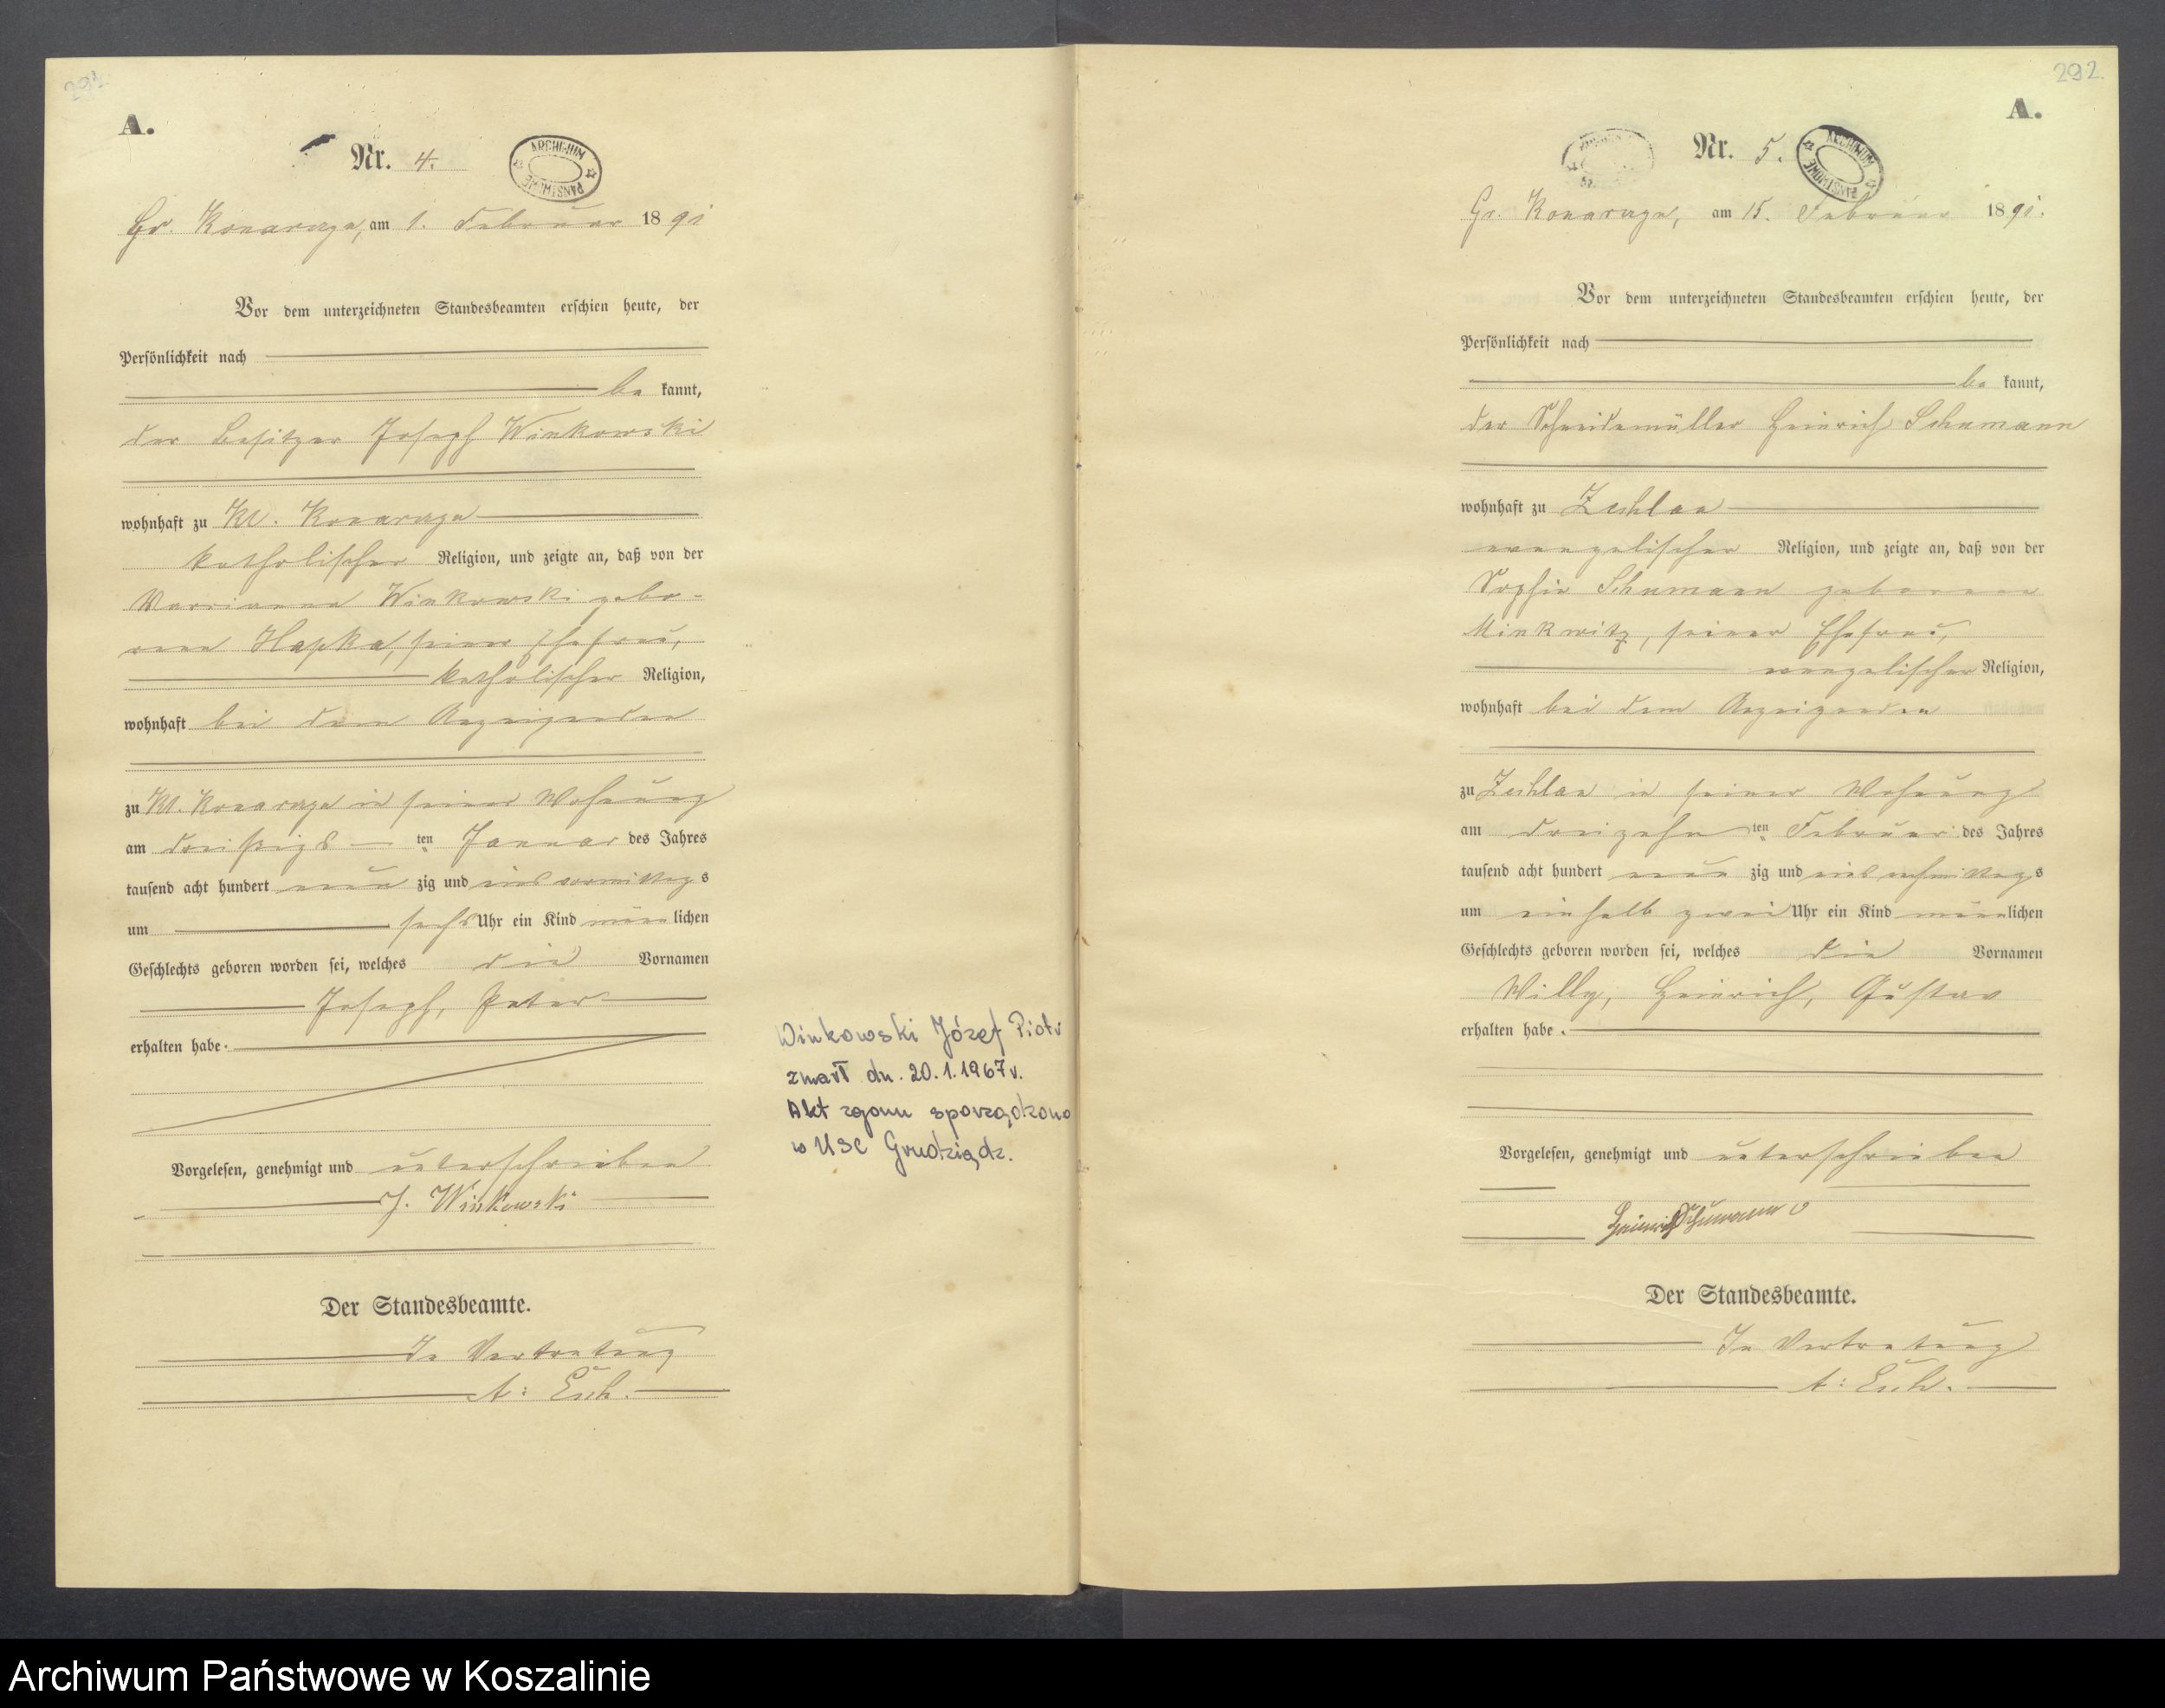 A.
Nr. 4.
ARCHIWUM PAŃSTWOWE
Gr. Konarczyn, am 1. Februar 1891
Vor dem unterzeichneten Standesbeamten erschien heute, der
Persönlichkeit nach
be kannt,
der Besitzer Joseph Winkowski
wohnhaft zu Kl. Konarczyn
katholischer Religion, und zeigte an, daß von der
Marianna Winkowski gebo-
rene Hapka, seiner Ehefrau,
katholischer Religion,
wohnhaft bei dem Anzeigenden
zu Kl. Konarczyn in seiner Wohnung
am dreißigs ten Januar des Jahres
tausend acht hundert neun zig und eins vormittags
um sechs Uhr ein Kind männlichen
Geschlechts geboren worden sei, welches die Vornamen
Joseph, Peter
erhalten habe.
Vorgelesen, genehmigt und unterschrieben
J. Winkowski
Der Standesbeamte.
In Vertretung
A: Esch.
Winkowski Józef Piotr
zmarł dn. 20.1.1967 r.
Akt zgonu sporządzono
w USC Grudziądz.
292.
A.
Nr. 5.
ARCHIWUM PAŃSTWOWE
Gr. Konarczyn, am 15. Februar 1891.
Vor dem unterzeichneten Standesbeamten erschien heute, der
Persönlichkeit nach
be kannt,
der Schneidemüller Heinrich Schumann
wohnhaft zu Zechlau
evangelischer Religion, und zeigte an, daß von der
Sophie Schumann geborene
Minkwitz, seiner Ehefrau,
evangelischer Religion,
wohnhaft bei dem Anzeigenden
zu Zechlau in seiner Wohnung
am dreizehn ten Februar des Jahres
tausend acht hundert neun zig und eins nachmittags
um einhalb zwei Uhr ein Kind männlichen
Geschlechts geboren worden sei, welches die Vornamen
Willy, Heinrich, Gustav
erhalten habe.
Vorgelesen, genehmigt und unterschrieben
Heinrich Schumann
Der Standesbeamte.
In Vertretung
A: Esch.
Archiwum Państwowe w Koszalinie